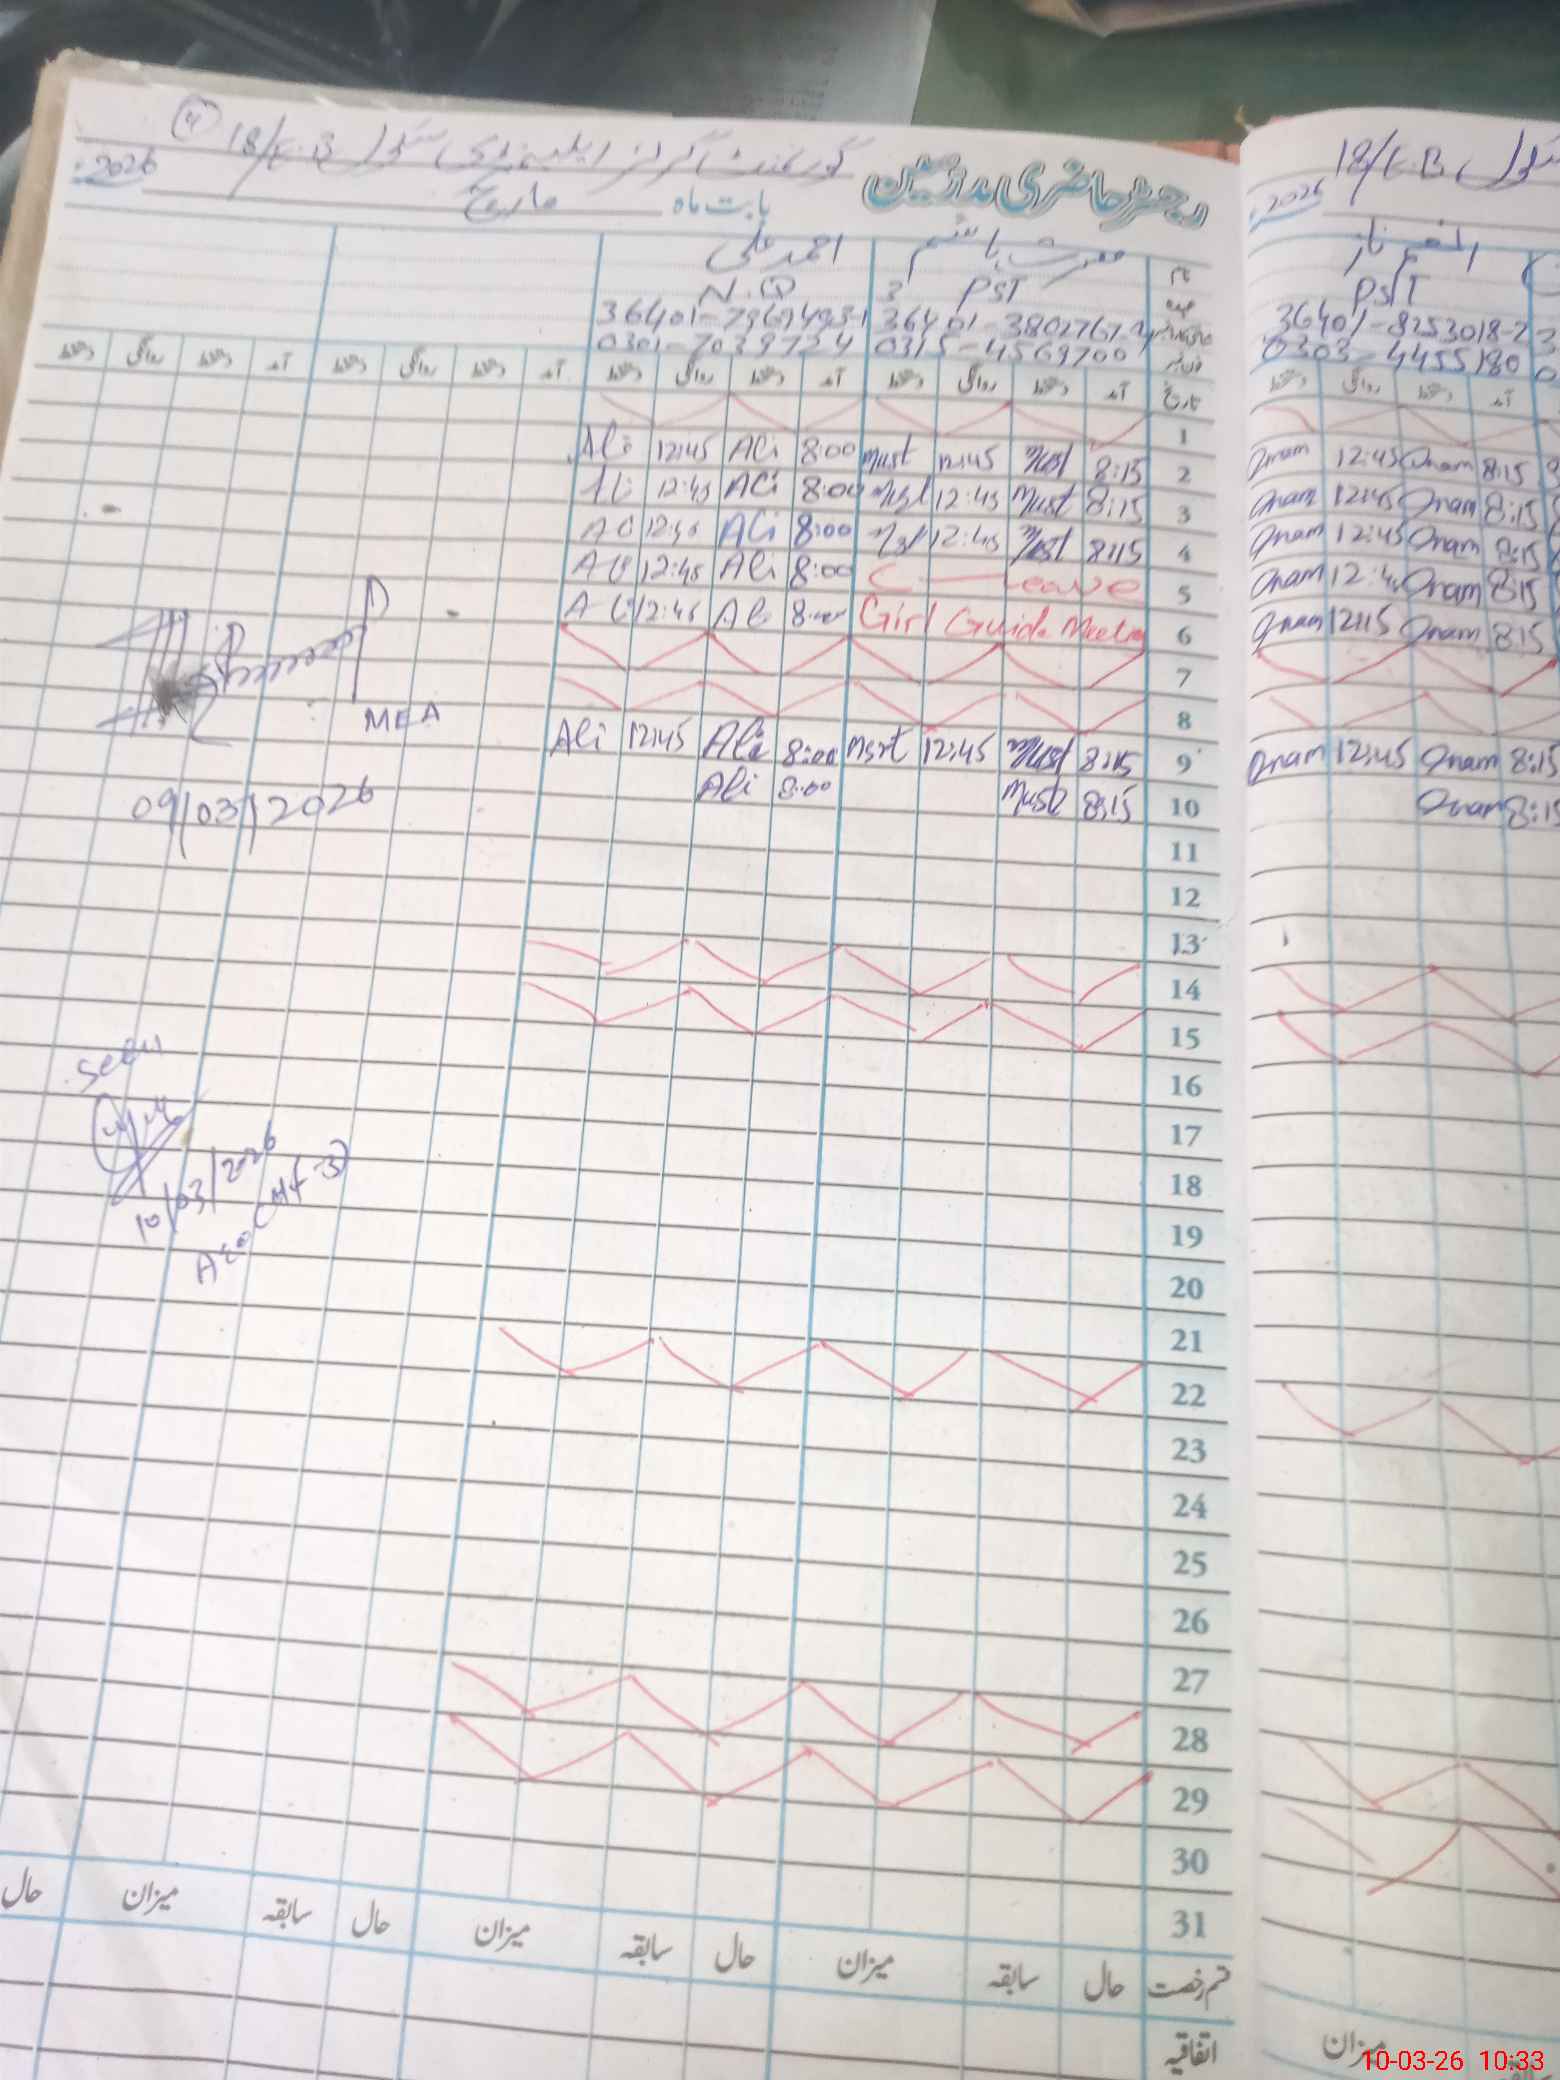 رجسٹر حاضری مدرسین گورنمنٹ گرلز ایلیمنٹری سکول 18/E.B
بابت ماہ مارچ 2026
نام احمد علی
عہدہ PST N.Q
36401-3802767-2
0315-4569700 0301-7039724
تاریخ آمد دستخط روانگی دستخط آمد دستخط روانگی دستخط آمد دستخط روانگی دستخط آمد دستخط روانگی دستخط
1
2 8:15 Must 12:45 Must 8:00 Ali 12:45 Ali
3 8:15 Must 12:45 8:00 Ali 12:45
4 8:15 Must 12:45 8:00 Ali
5 C Leave 8:00 Ali 12:45
6 Girl Guide Meeting 8:00 Ali 12:45
7
8
9 8:15 Must 12:45 8:00 Ali 12:45 Ali
10 8:15 Must 8:00 Ali
11
12
13
14
15
16
17
18
19
20
21
22
23
24
25
26
27
28
29
30
31
MEA
09/03/2026
Seen
10/03/2026
قسم رخصت حال سابقہ میزان حال سابقہ میزان حال سابقہ میزان حال
اتفاقیہ
18/E.B سکول
2026
PST
36401-8253018-2
0303-4455180
آمد دستخط روانگی دستخط
8:15 Onam 12:45 Onam
8:15 Onam 12:45 Onam
8:15 Onam 12:45 Onam
8:15 Onam Onam
8:15 Onam 12:15 Onam
8:15 Onam 12:45 Onam
8:15 Onam
میزان
10-03-26 10:33